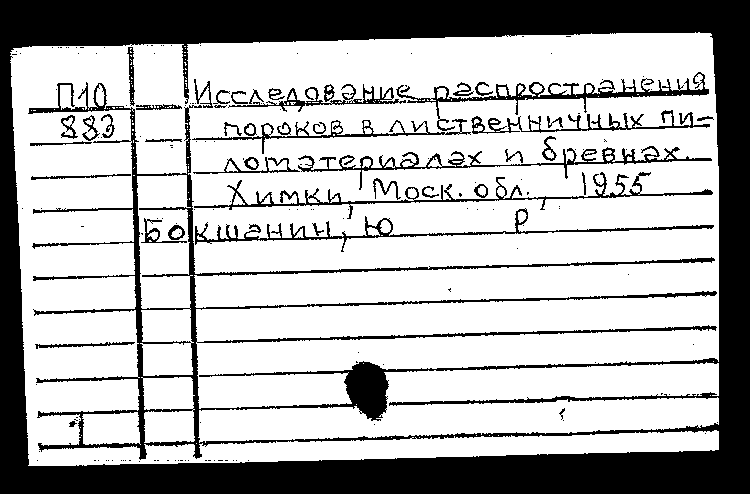 П10 Исследование распространения
883 пороков в лиственничных пи-
ломатериалах и бревнах.
Химки, Моск. обл., 1955
Бокшанин, Ю Р
1